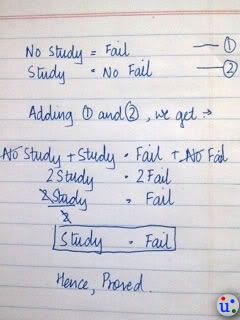 No Study = Fail — ①
Study = No Fail — ②
Adding ① and ②, we get →
No Study + Study = Fail + No Fail
2 Study = 2 Fail
2 Study = Fail
2
Study = Fail
Hence, Proved.
u